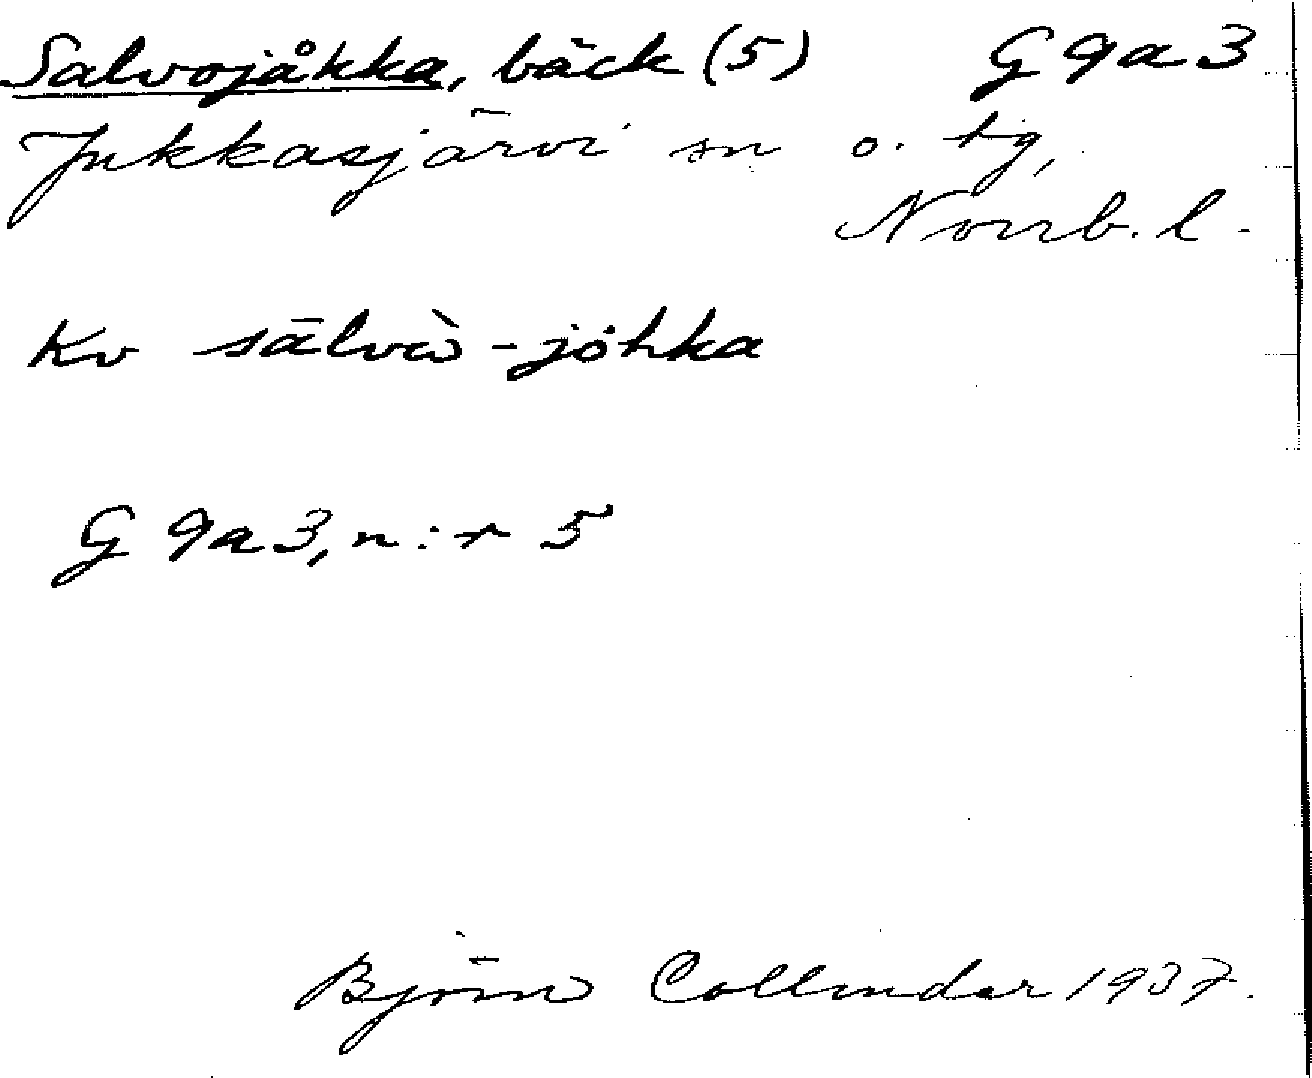 Salvojåkka, bäck (5) G 9a 3
Jukkasjärvi sn o. tg,
Norrb. l.
Kv sālvὰ-jȯhka
G 9a 3, n:r 5
Björn Collinder 1937.